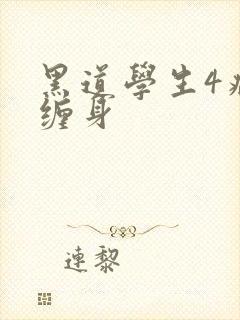 黑道學生4
缠身
連黎